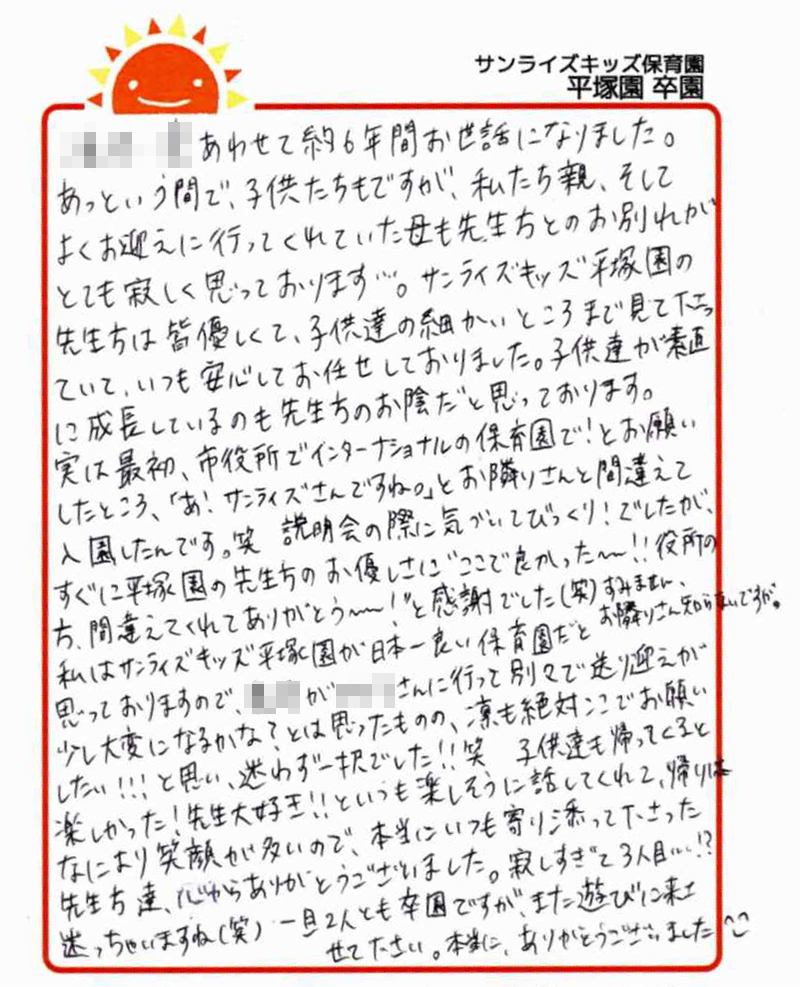 サンライズキッズ保育園
平塚園 卒園
あわせて約6年間お世話になりました。
あっという間で、子供たちもですが、私たち親、そして
よくお迎えに行ってくれていた母も先生方とのお別れが
とても寂しく思っております…。サンライズキッズ平塚園の
先生方は皆優しくて、子供達の細かいところまで見て下さっ
ていて、いつも安心してお任せしておりました。子供達が素直
に成長しているのも先生方のお陰だと思っております。
実は最初、市役所でインターナショナルの保育園で!とお願い
したところ、「あ!サンライズさんですね。」とお隣りさんと間違えて
入園したんです。笑 説明会の際に気づいてびっくり!でしたが、
すぐに平塚園の先生方のお優しさに"ここで良かった〜!!役所の
方、間違えてくれてありがとう〜!"と感謝でした(笑)すみません、
お隣りさん知らないですが。
私はサンライズキッズ平塚園が日本一良い保育園だと
思っておりますので、がさんに行って別々で送り迎えが
少し大変になるかな?とは思ったものの、凛も絶対ここでお願い
したい!!!と思い、迷わず一択でした!!笑 子供達も帰ってくると
楽しかった!先生大好き!!といつも楽しそうに話してくれて、帰りは
なにより笑顔が多いので、本当にいつも寄り添って下さった
先生方達、心からありがとうございました。寂しすぎて3人目…!?
迷っちゃいますね(笑) 一旦2人とも卒園ですが、また遊びに来さ
せて下さい。本当に、ありがとうございました